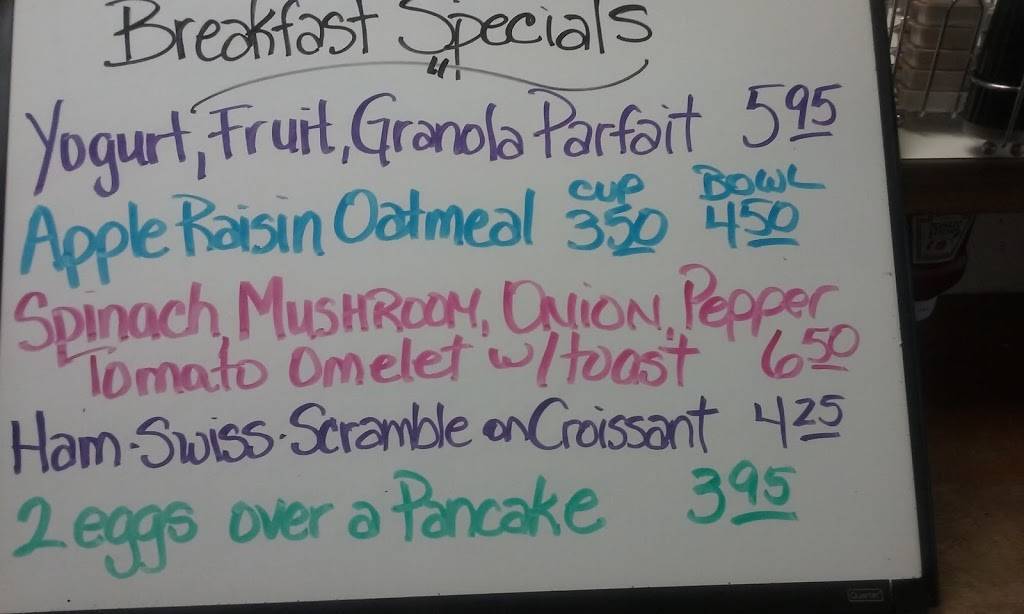 Breakfast Specials
Yogurt, Fruit, Granola Parfait 5 95
cup Bowl
Apple Raisin Oatmeal 3 50 4 50
Spinach, MUSHROOM, ONION, Pepper
Tomato Omelet w/toast 6 50
Ham-Swiss-Scramble on Croissant 4 25
2 eggs over a Pancake 3 95
Quartet